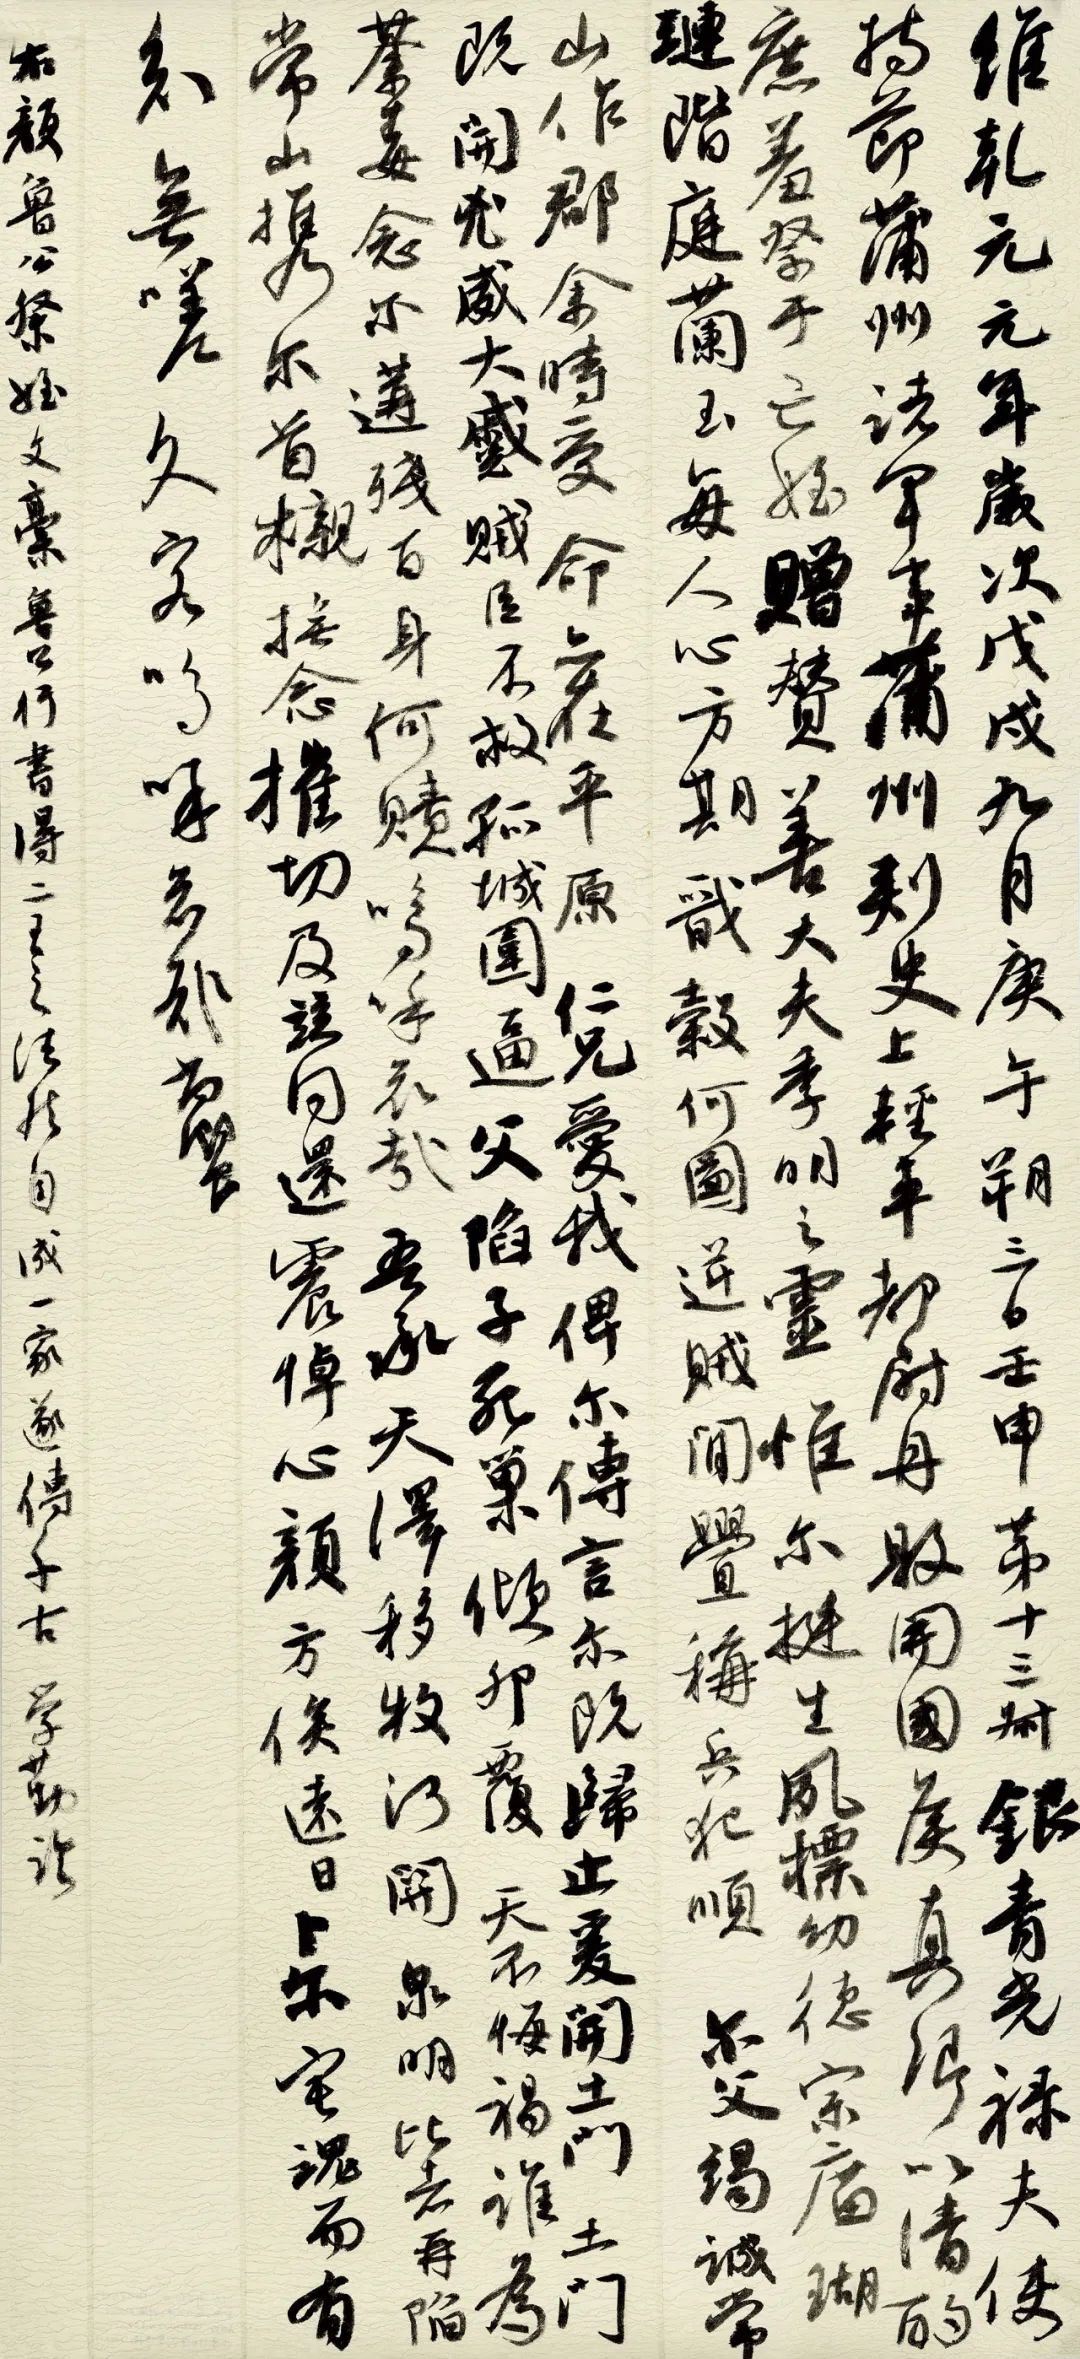 維乾元元年歲次戊戌九月庚午朔三日壬申第十三州銀青光祿夫使
持節蒲州諸軍事蒲州刺史上輕車都尉丹敭開國侯真卿以清酌
庶羞祭于亡姪贈贊善大夫季明之靈惟尔挺生夙標幼德宗廟瑚
璉階庭蘭玉每人心方期戩穀何圖逆賊閒釁稱兵犯順尔父竭誠常
山作郡余時受命亦在平原仁兄愛我俾尔傳言尔既歸止爰開土門土門
既開兇威大蹙賊臣不救孤城圍逼父陷子死巢傾卵覆天不悔禍誰為
荼毒念尔遘殘百身何贖嗚呼哀哉吾承天澤移牧河關泉明比者再陷
常山携尔首櫬撫念摧切及茲同還震悼心顏方俟遠日卜尔宅魂而有
知無嗟久客嗚呼哀哉尚饗
右顏魯公祭姪文稾魯公行書得二王之法於自成一家遂傳千古 学勤記